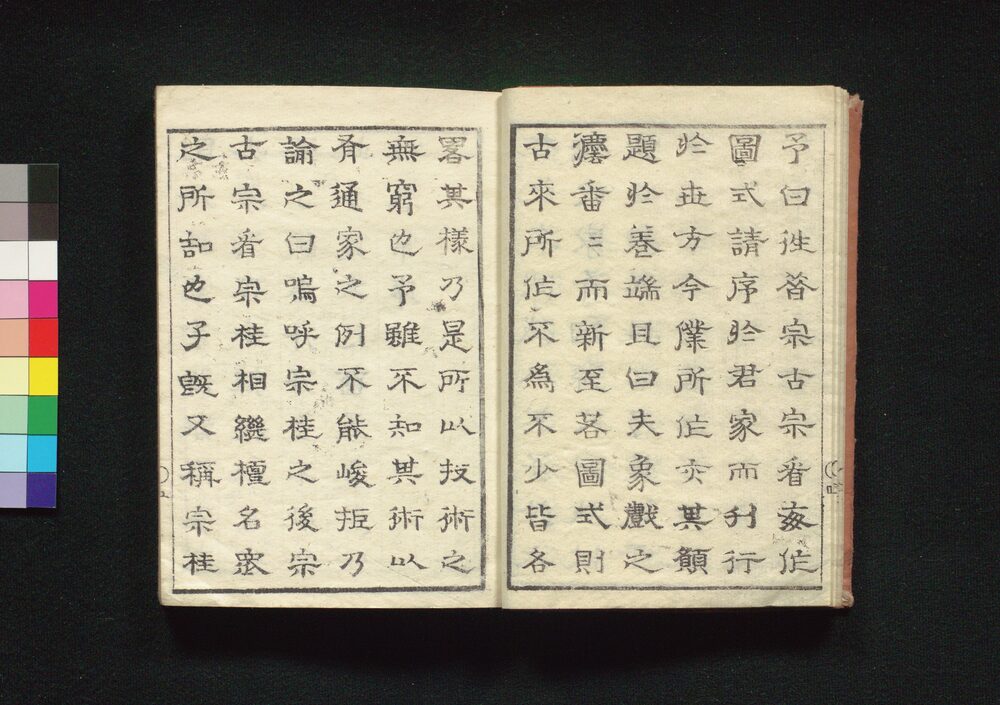 予曰徃昔宗古宗看每作
圖式請序於君家而刊行
於世方今僕所作亦其願
題於卷端且曰夫象戲之
番〻而新至若圖式則
古來所作不為不少皆各
畧其樣乃是所以技術之
無窮也予雖不知其術以
有通家之例不能峻拒乃
諭之曰嗚呼宗桂之後宗
古宗看宗桂相繼擅名衆
之所知也子既又稱宗桂